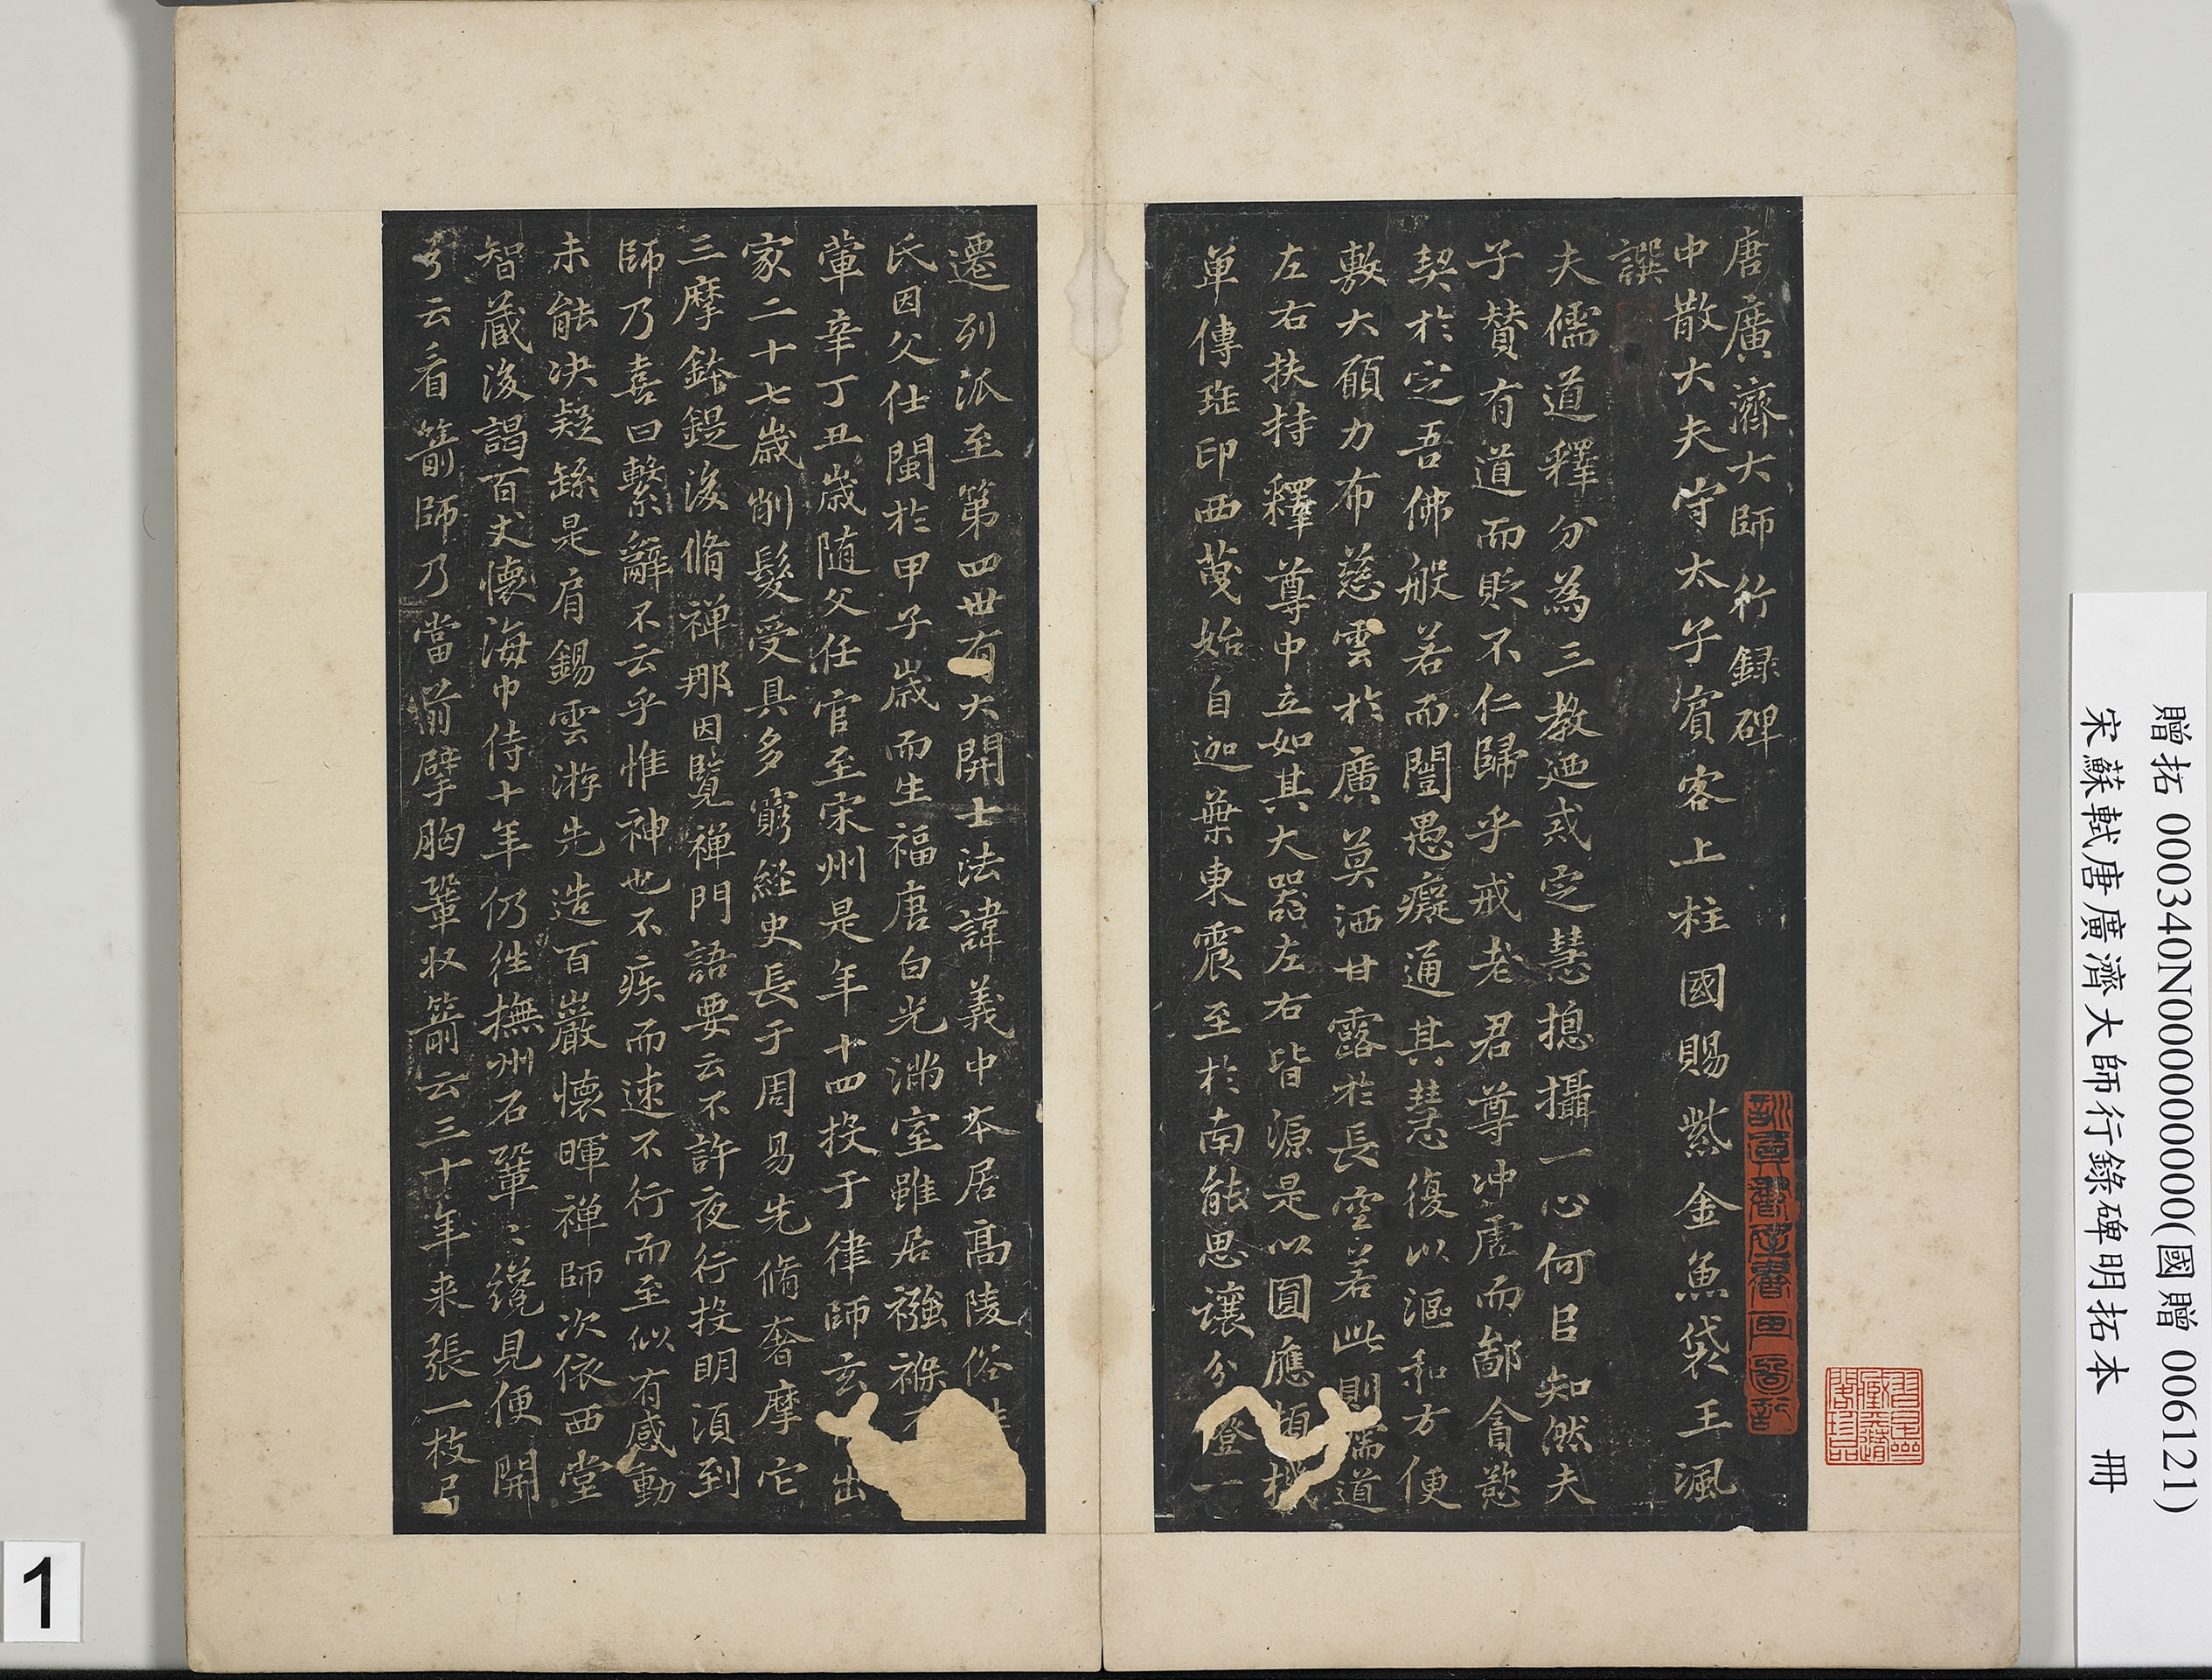 唐廣濟大師行錄碑
中散大夫守太子賓客上柱國賜紫金魚袋王諷
譔
夫儒道釋分為三教迺戒定慧揔攝一心何㠯知然夫
子贊有道而貶不仁歸乎戒老君尊冲虛而鄙貪慾
契於定吾佛般若而闓愚癡通其慧復以漚和方便
敷大願力布慈雲於廣莫洒甘露於長空若此則儒道
左右扶持釋尊中立如其大器左右皆源是以圓應頓機
單傳珤印西蔑始自迦葉東震至於南能思讓分 登一
遷列派至第四世有大開士法諱義中本居高陵俗
氏因父仕閩於甲子歲而生福唐白光滿室雖居襁褓不
葷辛丁丑歲随父任官至宋州是年十四投于律師玄 出
家二十七歲削髮受具多窮経史長于周易先脩奢摩它
三摩鉢鍉後脩禅那因覧禅門語要云不許夜行投明湏到
師乃喜曰繫辭不云乎惟神也不疾而速不行而至似有感動
未能决疑繇是肩錫雲游先造百巖懷暉禅師次依西堂
智蔵後謁百丈懷海巾侍十年仍往撫州石鞏〻纔見便開
弓云看箭師乃當前擘胸鞏収箭云三十年来張一枝弓
贈拓 000340N000000000(國贈 006121)
宋蘇軾唐廣濟大師行錄碑明拓本 冊
1